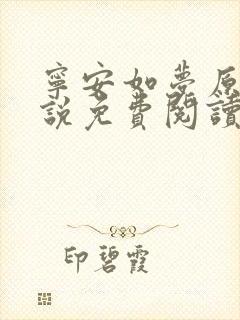 寧安如夢原
說免費閱讀
印碧霞